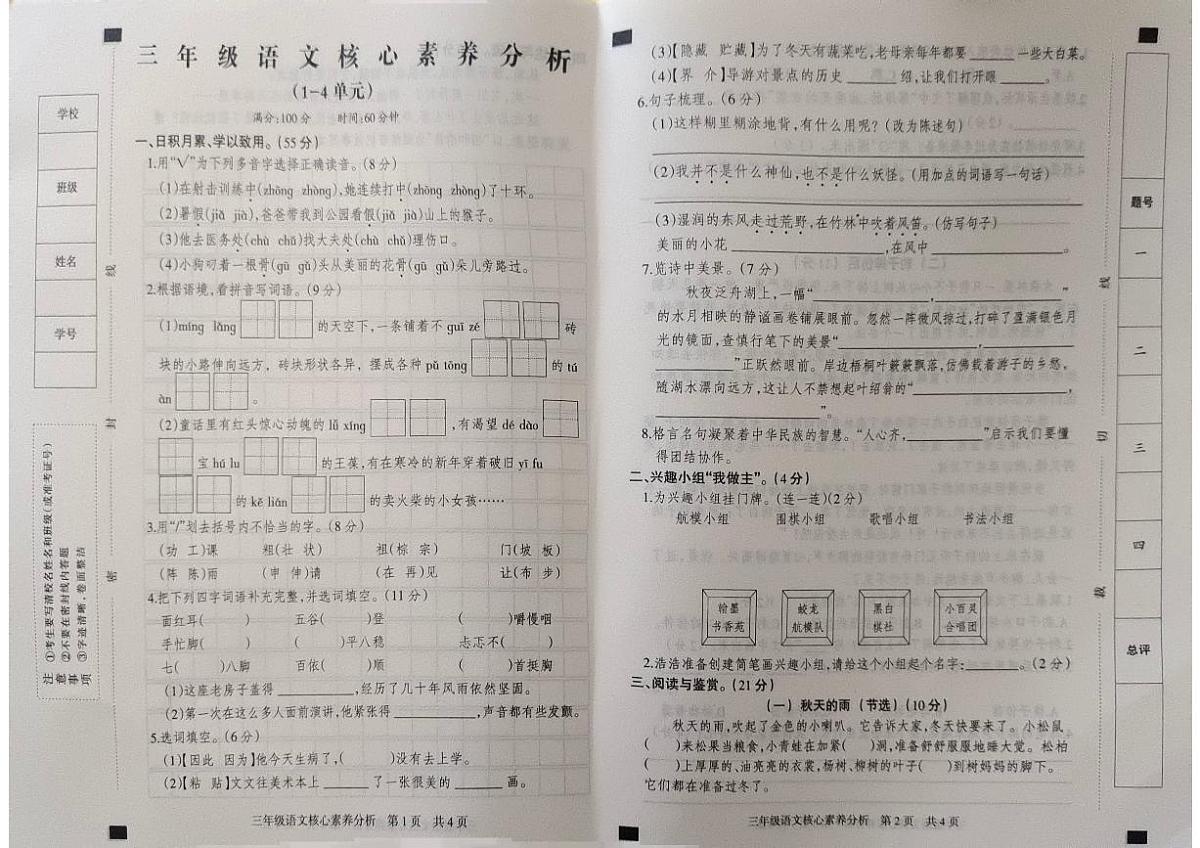 三年级语文核心素养分析
(1-4单元)
满分:100分 时间:60分钟
一、日积月累、学以致用。(55分)
1.用“√”为下列多音字选择正确读音。(8分)
(1)在射击训练中(zhōng zhòng),她连续打中(zhōng zhòng)了十环。
(2)暑假(jiǎ jià),爸爸带我到公园看假(jiǎ jià)山上的猴子。
(3)他去医务处(chù chǔ)找大夫处(chù chǔ)理伤口。
(4)小狗叼着一根骨(gū gǔ)头从美丽的花骨(gū gǔ)朵儿旁路过。
2.根据语境,看拼音写词语。(9分)
(1)míng lǎng 的天空下,一条铺着不 guī zé 砖
块的小路伸向远方，砖块形状各异，摆成各种 pǔ tōng 的 tú
àn 。
(2)童话里有红头惊心动魄的 lǚ xíng ,有渴望 dé dào
宝 hú lu 的王葆,有在寒冷的新年穿着破旧 yī fu
的 kě lián 的卖火柴的小女孩……
3.用“/”划去括号内不恰当的字。(8分)
(功 工)课 粗(壮 状) 祖(棕 宗) 门(坡 板)
(阵 陈)雨 (申 伸)请 (在 再)见 让(布 步)
4.把下列四字词语补充完整,并选词填空。(11分)
面红耳( ) 五谷( )登 ( )嚼慢咽
手忙脚( ) ( )平八稳 忐忑不( )
七( )八脚 百依( )顺 ( )首挺胸
(1)这座老房子盖得 ,经历了几十年风雨依然坚固。
(2)第一次在这么多人面前演讲,他紧张得 ,声音都有些发颤。
5.选词填空。(6分)
(1)【因此 因为】他今天生病了,( )没有去上学。
(2)【粘 贴】文文往美术本上 了一张很美的 画。
三年级语文核心素养分析 第1页 共4页
学校
班级
姓名
学号
线
封
密
注意事项
①考生要写清校名姓名和班级(或准考证号)
②不要在密封线内答题
③字迹清晰,卷面整洁
(3)【隐藏 贮藏】为了冬天有蔬菜吃,老母亲每年都要 一些大白菜。
(4)【界 介】导游对景点的历史 绍,让我们打开眼 。
6.句子梳理。(6分)
(1)这样糊里糊涂地背,有什么用呢? (改为陈述句)
(2)我并不是什么神仙,也不是什么妖怪。(用加点的词语写一句话)
(3)湿润的东风走过荒野,在竹林中吹着风笛。(仿写句子)
美丽的小花 ,在风中 。
7.览诗中美景。(7分)
秋夜泛舟湖上,一幅“ , ”
的水月相映的静谧画卷铺展眼前。忽然一阵微风掠过,打碎了盈满银色月
光的镜面,查慎行笔下的美景“ ,
”正跃然眼前。岸边梧桐叶簌簌飘落,仿佛载着游子的乡愁,
随湖水漂向远方,这让人不禁想起叶绍翁的“ ,
”。
8.格言名句凝聚着中华民族的智慧。“人心齐, ”启示我们要懂
得团结协作。
二、兴趣小组“我做主”。(4分)
1.为兴趣小组挂门牌。(连一连)(2分)
航模小组 围棋小组 歌唱小组 书法小组
翰墨书香苑 蛟龙航模队 黑白棋社 小百灵合唱团
2.浩浩准备创建简笔画兴趣小组,请给这个小组起个名字: 。(2分)
三、阅读与鉴赏。(21分)
(一) 秋天的雨(节选)(10分)
秋天的雨,吹起了金色的小喇叭。它告诉大家,冬天快要来了。小松鼠
( )来松果当粮食,小青蛙在加紧( )洞,准备舒舒服服地睡大觉。松柏
( )上厚厚的、油亮亮的衣裳,杨树、柳树的叶子( )到树妈妈的脚下。
它们都在准备过冬了。
三年级语文核心素养分析 第2页 共4页
线
切
裁
题号
一
二
三
四
总评